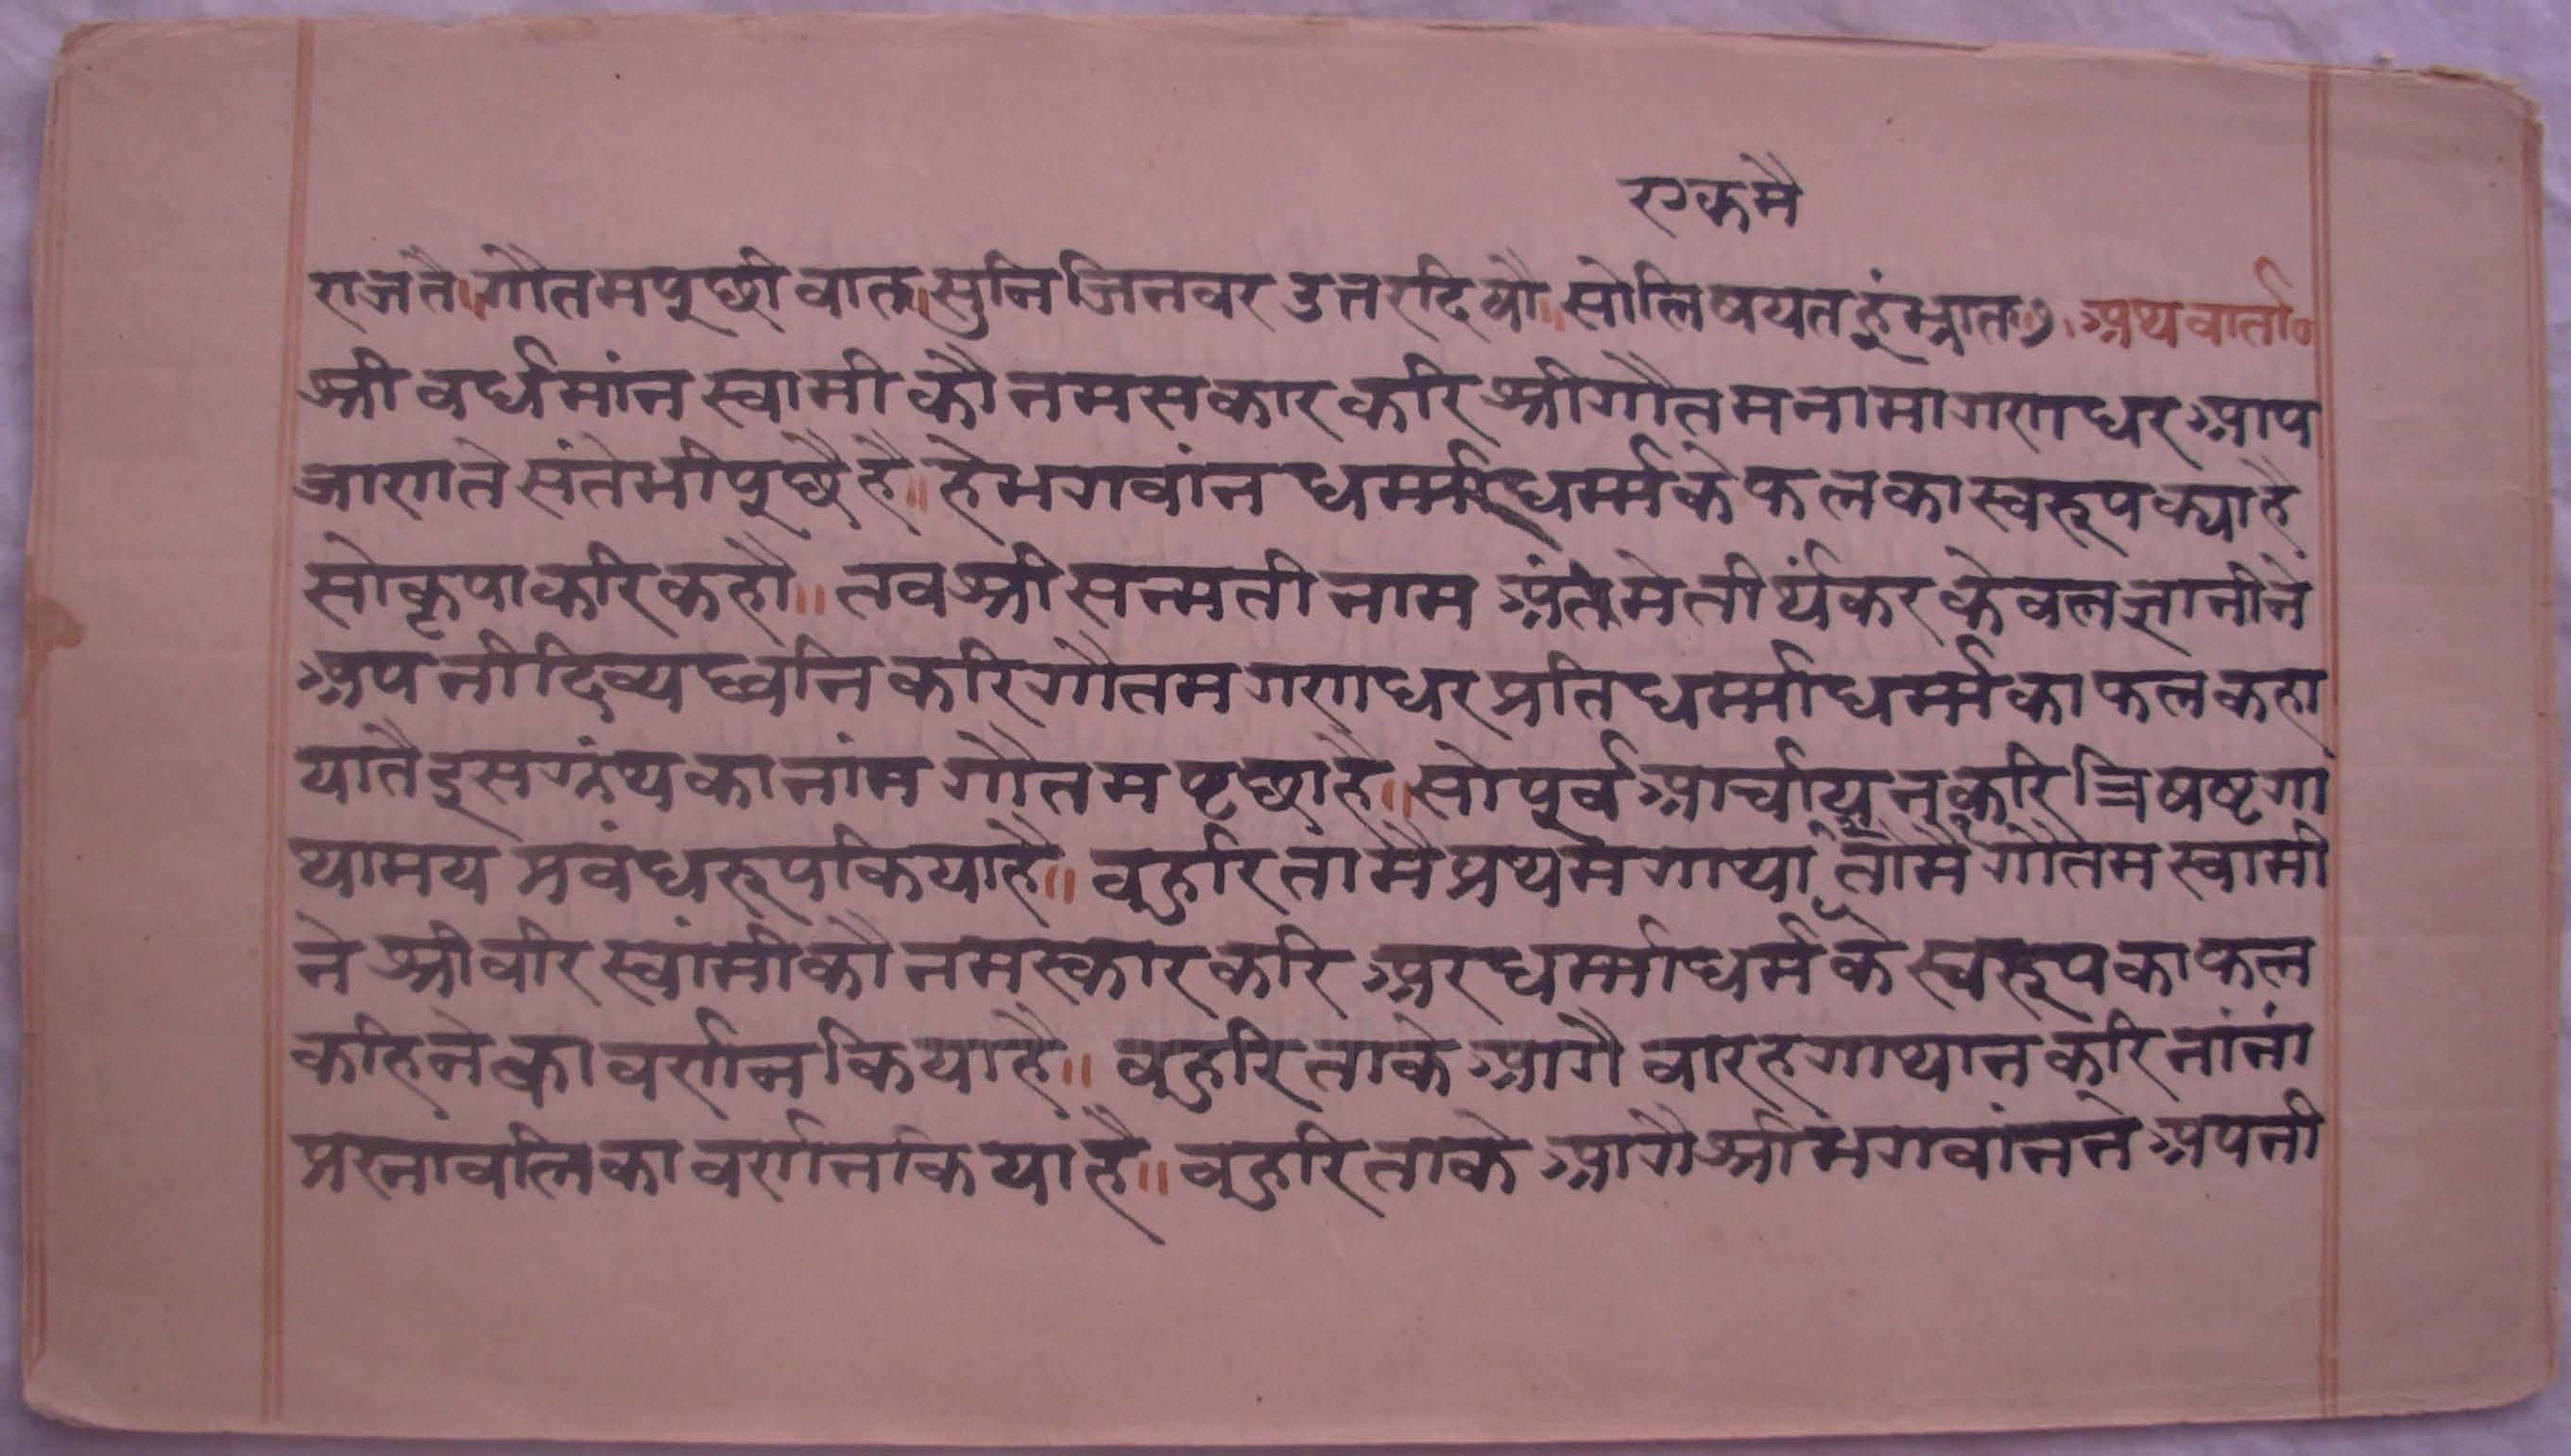 एकमै
राजतै॥गौतमपूछीवात॥सुनिजिनवर उत्तरदियौ॥सोलिषयतहूंभ्रात॥७॥ अथवार्ता॰
श्रीवर्धमांन स्वामीकौनमसकारकरि श्रीगौतमनामागणधरआप
जाणतेसंतेभीपूछैहै॥ हेभगवांन धर्म्मअधर्म्मकेफलकास्वरूपक्याहै
सोकृपाकरिकहौ॥ तवश्रीसन्मतीनाम अंतमेतीर्थंकरकेवलज्ञानीनें
अपनीदिव्यध्वनिकरिगौतमगणधरप्रतिधर्म्माधर्म्मकाफलकहा
यातैइसग्रंथकानांमगौतमपृछाहै॥सोपूर्वआर्चायनकरित्रिषष्टगा
थामयप्रवंधरूपकियाहै॥ वहुरितांमैप्रथमगाथा तांमैंगौतमस्वामी
नेश्रीवीरस्वांमीकौनमस्कारकरि अरधर्म्माधर्मकेस्वरूपकाफल
कहिनेकावर्णनकियाहै॥ वहुरिताकेआगैवारहगाथानकरिनांनां
प्रस्नांवलिकावर्णनकियाहै॥ वहुरिताकेआगैश्रीभगवांननेअपनी